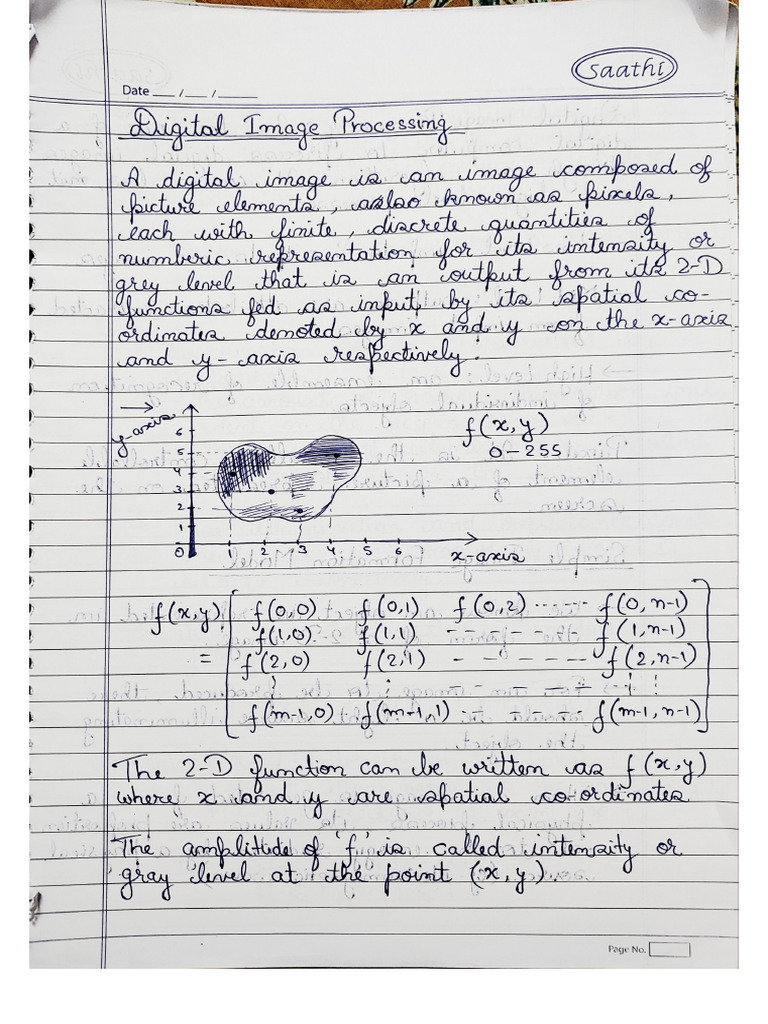 Saathi
Date __/__/____
Digital Image Processing
A digital image is an image composed of
picture elements, also known as pixels,
each with finite, discrete quantities of
numberic representation for its intensity or
grey level that is an output from its 2-D
functions fed as input by its spatial co-
ordinates denoted by x and y on the x-axis
and y-axis respectively.
y-axis
f(x,y)
0-255
6
5
4
3
2
1
0 1 2 3 4 5 6 x-axis
f(x,y) f(0,0) f(0,1) f(0,2) ------ f(0,n-1)
f(1,0) f(1,1) ------- f(1,n-1)
= f(2,0) f(2,1) ------ f(2,n-1)
f(m-1,0) f(m-1,1) ------ f(m-1,n-1)
The 2-D function can be written as f(x,y)
where x and y are spatial co-ordinates
The amplitude of 'f' is called intensity or
gray level at the point (x,y).
Page No.